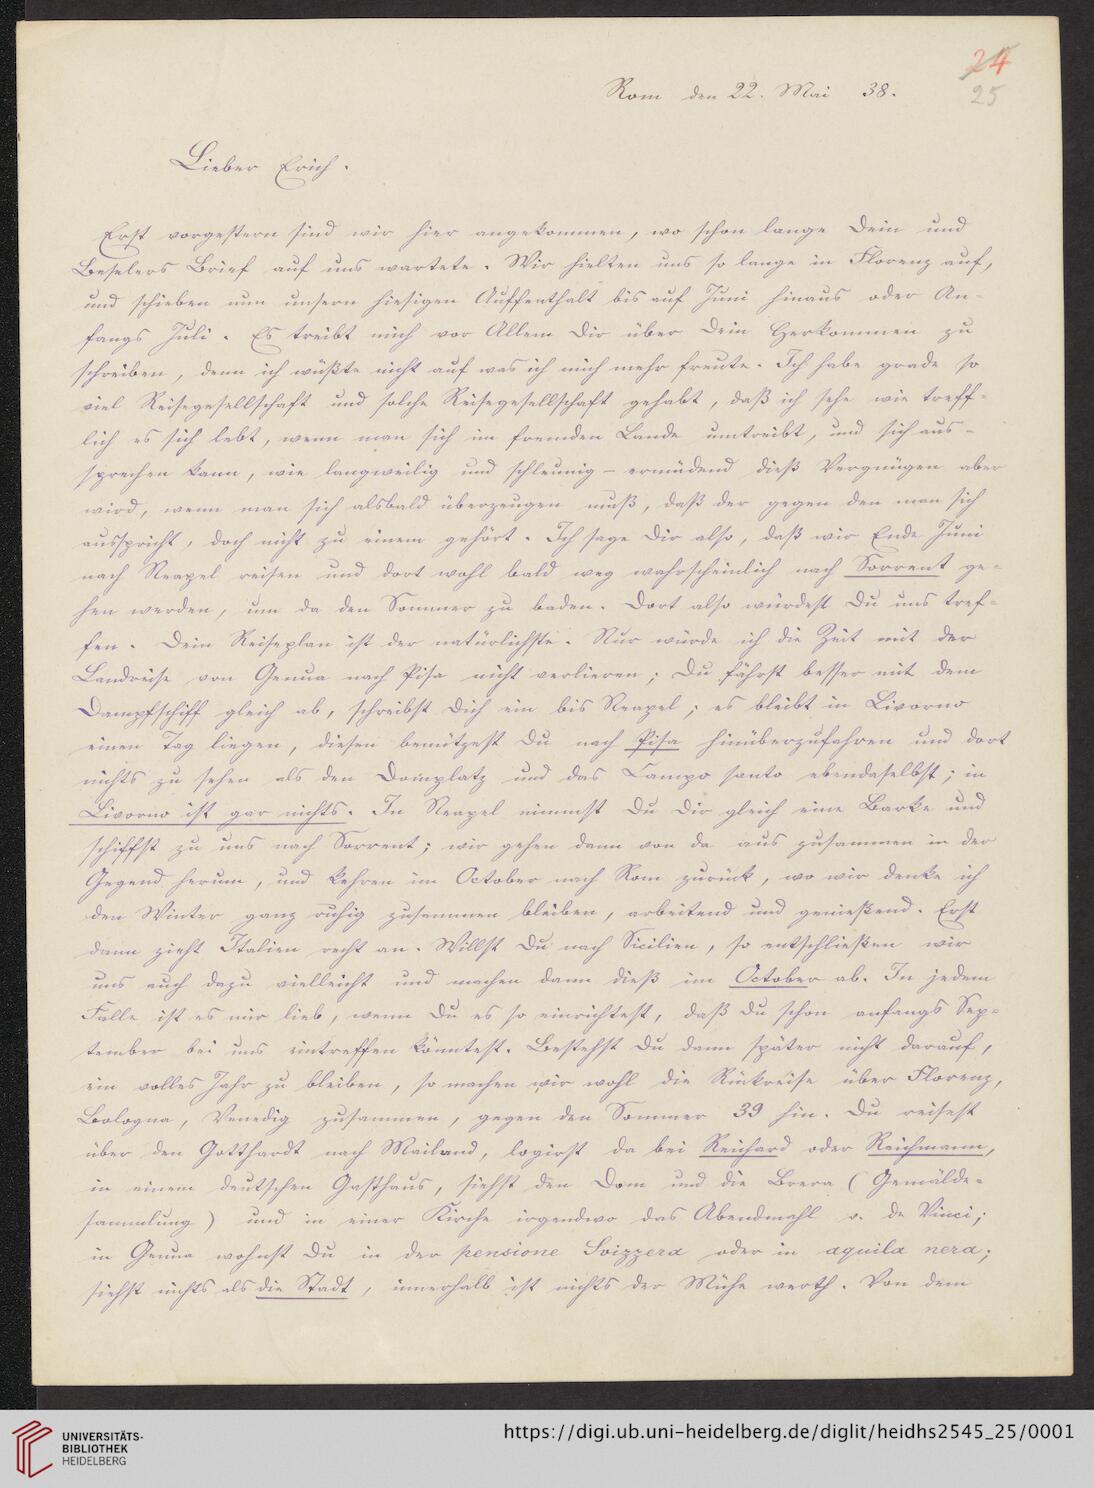 24
25
Rom den 22. Mai 38.
Lieber Erich.
Erst vorgestern sind wir hier angekommen, wo schon lange Dein und
Beselers Brief auf uns wartete. Wir hielten uns so lange in Florenz auf,
und schieben nun unsern hiesigen Auffenthalt bis auf Juni hinaus oder An-
fangs Juli. Es treibt mich vor Allem Dir über Dein Herkommen zu
schreiben, denn ich wüßte nicht auf was ich mich mehr freute. Ich habe grade so
viel Reisegesellschaft und solche Reisegesellschaft gehabt, daß ich sehe wie treff-
lich es sich lebt, wenn man sich im fremden Lande umtreibt, und sich aus-
sprechen kann, wie langweilig und schleunig-ermüdend dieß Vergnügen aber
wird, wenn man sich alsbald überzeugen muß, daß der gegen den man sich
ausspricht, doch nicht zu einem gehört. Ich sage Dir also, daß wir Ende Juni
nach Neapel reisen und dort wohl bald weg wahrscheinlich nach Sorrent ge-
hen werden, um da den Sommer zu baden. Dort also würdest Du uns tref-
fen. Dein Reiseplan ist der natürlichste. Nur würde ich die Zeit mit der
Landreise von Genua nach Pisa nicht verlieren; Du fährst besser mit dem
Dampfschiff gleich ab, schreibst Dich ein bis Neapel; es bleibt in Livorno
einen Tag liegen, diesen benützest Du nach Pisa hinüberzufahren und dort
nichts zu sehen als den Domplatz und das Campo santo ebendaselbst; in
Livorno ist gar nichts. In Neapel nimmst Du Dir gleich eine Barke und
schiffst zu uns nach Sorrent; wir gehen dann von da aus zusammen in der
Gegend herum, und kehren im October nach Rom zurück, wo wir denke ich
den Winter ganz ruhig zusammen bleiben, arbeitend und genießend. Erst
dann zieht Italien recht an. Willst Du nach Sicilien, so entschließen wir
uns auch dazu vielleicht und machen dann dieß im October ab. In jedem
Falle ist es mir lieb, wenn Du es so einrichtest, daß Du schon anfangs Sep-
tember bei uns eintreffen könntest. Bestehst Du dann später nicht darauf,
ein volles Jahr zu bleiben, so machen wir wohl die Rückreise über Florenz,
Bologna, Venedig zusammen, gegen den Sommer 39 hin. Du reisest
über den Gotthardt nach Mailand, logirst da bei Reichard oder Reichmann,
in einem deutschen Gasthaus, siehst den Dom und die Brera (Gemälde-
sammlung) und in einer Kirche irgendwo das Abendmahl v. da Vinci;
in Genua wohnst Du in der pensione Svizzera oder in aquila nera;
siehst nichts als die Stadt, innerhalb ist nichts der Mühe werth. Von dem
UNIVERSITÄTS-
BIBLIOTHEK
HEIDELBERG
https://digi.ub.uni-heidelberg.de/diglit/heidhs2545_25/0001